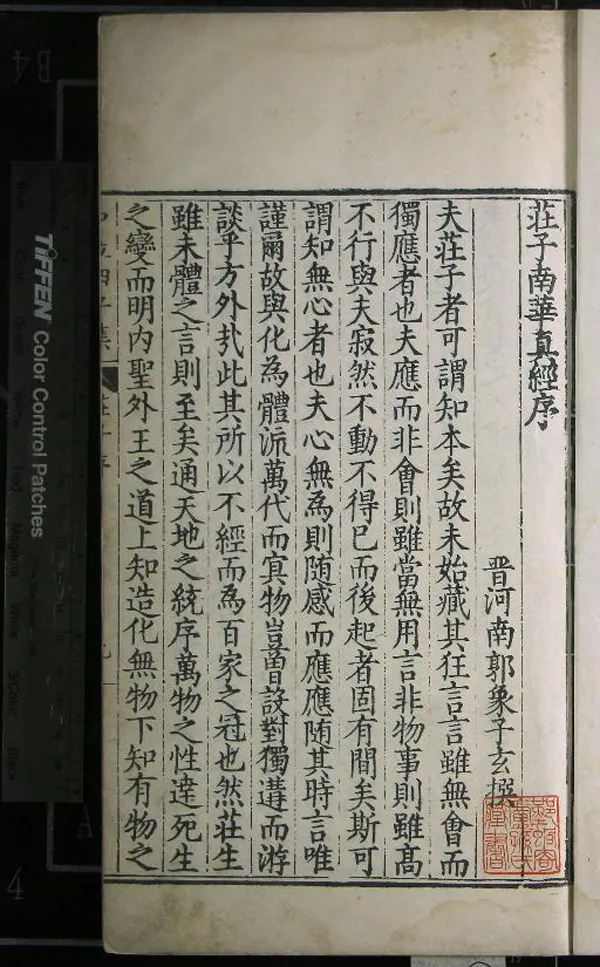 莊子南華真經序
晉河南郭象子玄撰
夫莊子者可謂知本矣故未始藏其狂言言雖無會而
獨應者也夫應而非會則雖當無用言非物事則雖高
不行與夫寂然不動不得已而後起者固有間矣斯可
謂知無心者也夫心無為則随感而應應随其時言唯
謹爾故與化為體流萬代而冥物豈曾設對獨遘而游
談乎方外㦲此其所以不經而為百家之冠也然莊生
雖未體之言則至矣通天地之統序萬物之性達死生
之變而明内聖外王之道上知造化無物下知有物之
TIFFEN Color Control Patches
B4
A
4